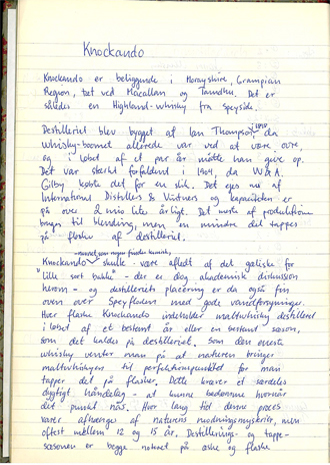 Knockando
Knockando er beliggende i Morayshire, Grampian
Region, tæt ved Macallan og Tamdhu. Det er
således en Highland-whisky fra Speyside.
Destilleriet blev bygget af Ian Thompson, da
whisky-boomet allerede var ved at være ovre,
og i løbet af et par år måtte han give op.
Det var stærkt forfaldent i 1904, da W&A.
Gilby købte det for en slik. Det ejes nu af
International Distillers & Vintners og kapaciteten er
på over mio liter årligt. Det meste af produktionen
bruges til blending, men en mindre del tappes
på flasker af destilleriet.
Knockando skulle være afledt af det galiske for
"lille sort bakke" - der er dog akademisk diskussion
herom - og destilleriets placering er da også fin
oven over Spey floden med gode vandforsyninger.
Hver flaske Knockando indeholder maltwhisky destilleret
i løbet af et bestemt år eller en bestemt sæson,
som det kaldes på destilleriet. Som den eneste
whisky venter man på at naturen bringer
maltwhiskyen til perfektionspunktet før man
tapper det på flasker. Dette kræver et særdeles
dygtigt håndelag - at kunne bedømme hvornår
det punkt nås. Hvor lang tid denne proces
varer afhænger af naturens modningsmysterier, men
oftest mellem 12 og 15 år. Destillerings- og tappe-
sæsonen er begge noteret på æske og flaske